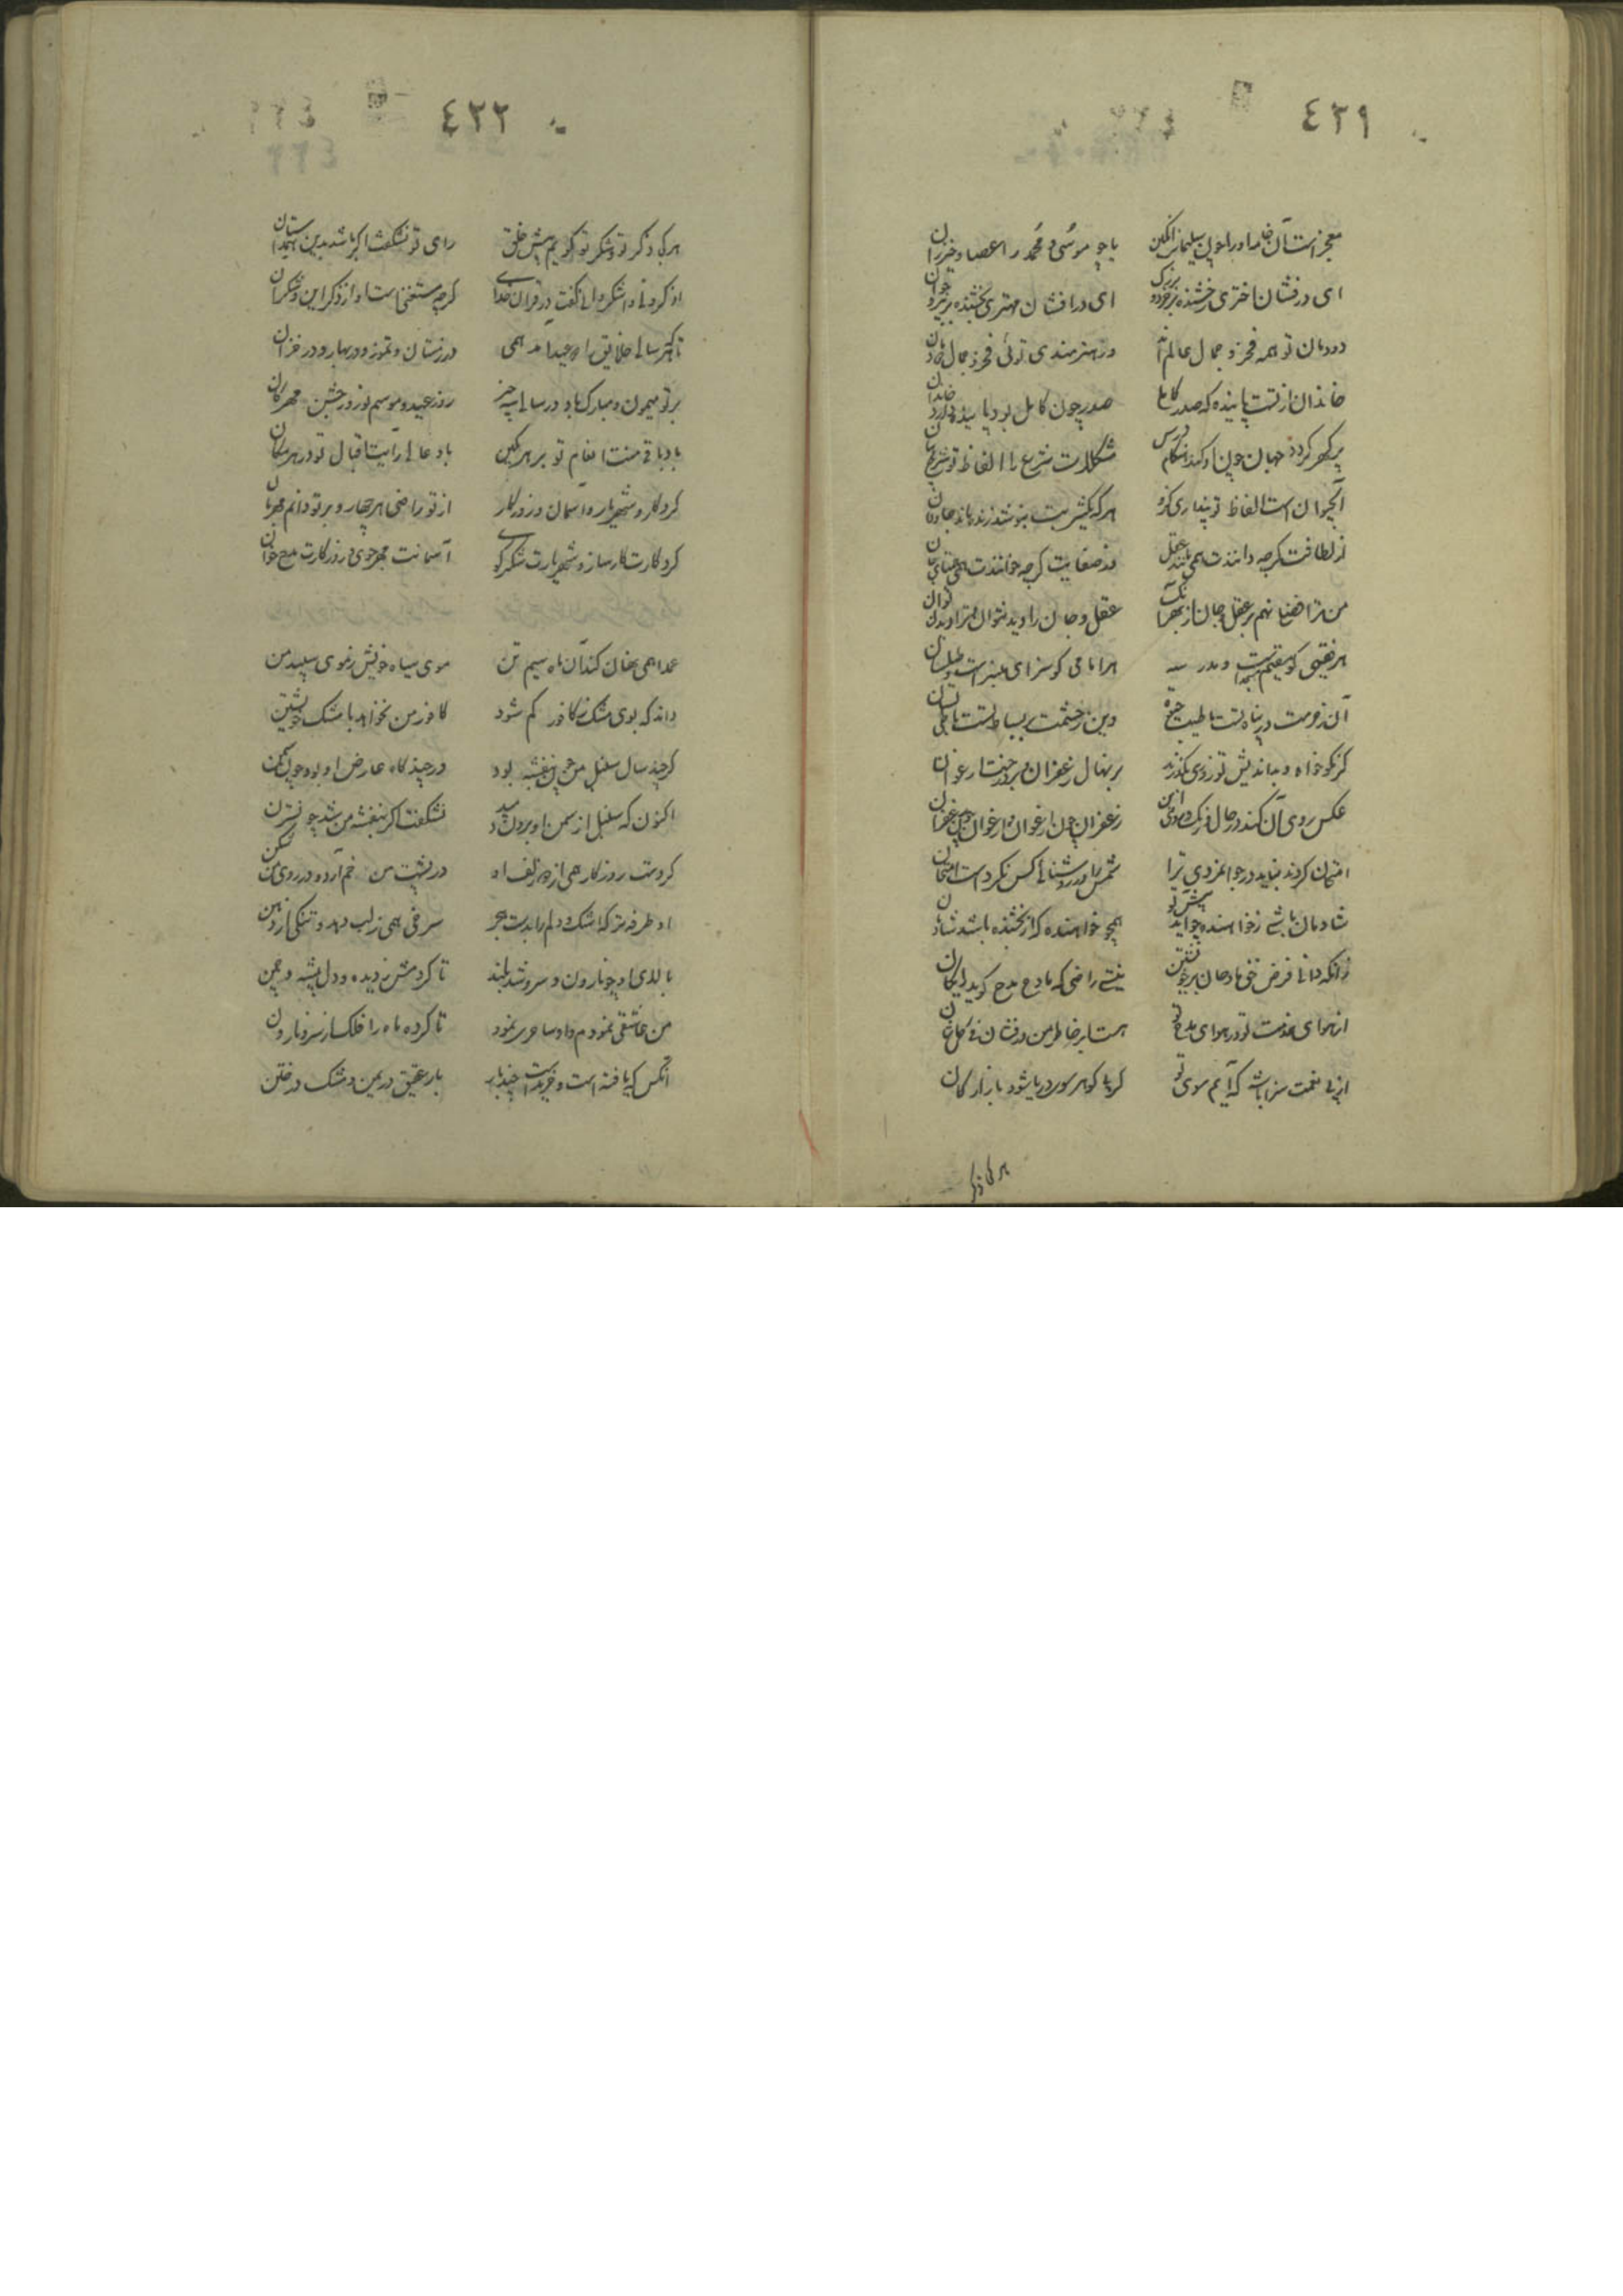 ٤٢١
معجز است آن خامه او را چون سلیمان را نگین
یا چو موسی و محمد را عصا و خیزران
ای درفشان اختری رخشنده بر خرد و بزرک
ای درافشان مهتری بخشنده بر پیر و جوان
دودمان تو همه فخر و جمال عالم اند
وز هنرمندی توئی فخر و جمال دودمان
خاندان از تست پاینده که صدر کاملی
صدر چون کامل بود پاینده دارد خاندان
پر گهر گردد جهان چون او کند هنگام درس
مشکلات شرع را الفاظ تو شرح و بیان
آب حیوان است الفاظ تو پنداری کزو
هر که یکشربت بنوشد زنده ماند جاودان
از لطافت گرچه دانندت همی مانند عقل
وز صفایت گرچه خوانندت همی همتای جان
من ترا فضل نهم بر عقل و جان از بهر آنک
عقل و جان را دید نتوان مر ترا دیدن توان
هر فقیهی کو مقیم است و مدرسه
هر امامی کو سزای منبر است و طیلسان
آن ز فرت در پناه تست با طیب حیوة
وین ز حشمت بر بساط تست با
گر نکوخواه و بداندیش تو زوی بگذرند
بر نهال زعفران و بر درخت ارغوان
عکس روی آن کند در حال
زعفران چون ارغوان و ارغوان چون زعفران
امتحان کردن نباید در جوانمردی ترا
شمس را در روشنائی کس نکرد است امتحان
شادمان باشی ز خواهنده چو آید پیش تو
همچو خواهنده که از بخشنده باشد شادمان
زانکه دانی فرض حق مادحان بر خویشتن
نیستی راضی که مادح مدح گوید رایگان
از هوای خدمت تو در هوای مدح تو
هست ابر خاطر من درفشان
از پی نعمت سزا باشد که آیم سوی تو
کز پی گوهر سوی دریا شود بازارگان
هر کجا ذکر
٤٢٢
هر کجا ذکر تو و شکر تو گویم پیش خلق
رای تو نشگفت اگر باشد بدین همداستان
اذکرونی واشکروا لی گفت در قرآن خدای
گرچه مستغنی است او از ذکر این و شکر آن
تا بهر سالی خلایق را دو عید آمد همی
در زمستان و تموز و در بهار و در خزان
بر تو میمون و مبارک باد در سالی سه چیز
روز عید و موسم نوروز و جشن مهرکان
باد باقی منت انعام تو بر هر مکین
باد عالی رایت اقبال تو در هر مکان
کردکار و شهریار و آسمان و روزکار
از تو راضی هر چهار و بر تو دائم مهربان
کردکارت کارساز و شهریارت شکرگوی
آسمانت مهرجوی و روزکارت مدح خوان
عمدا همی نهان کند آن ماه سیم تن
موی سیاه خویش ز موی سپید من
داند که بوی مشک ز کافور کم شود
کافور من نخواهد با مشک خویشتن
گر چند سال سنبل من چون بنفشه بود
ور چند گاه عارض او بود چون سمن
اکنون که سنبل از سمن او برون دمید
نشگفت اگر بنفشه من شد چو نسترن
کردست روزگار رهی از دو زلف او
در پشت من خم آرد و در روی من شکن
او طرفه‌تر که اشک و دلم را بدست هجر
سرخی همی ز لب دهد و تنگی از دهن
بالای او چو نارون و سرو شد بلند
تا کردمش ز دیده و دل پیشه و چمن
من عاشقی نمودم و او ساحری نمود
تا کرده ماه را فلک از سرو نارون
آنکس که یافته است و خریدست چند بار
بار عقیق در یمن و مشک در ختن